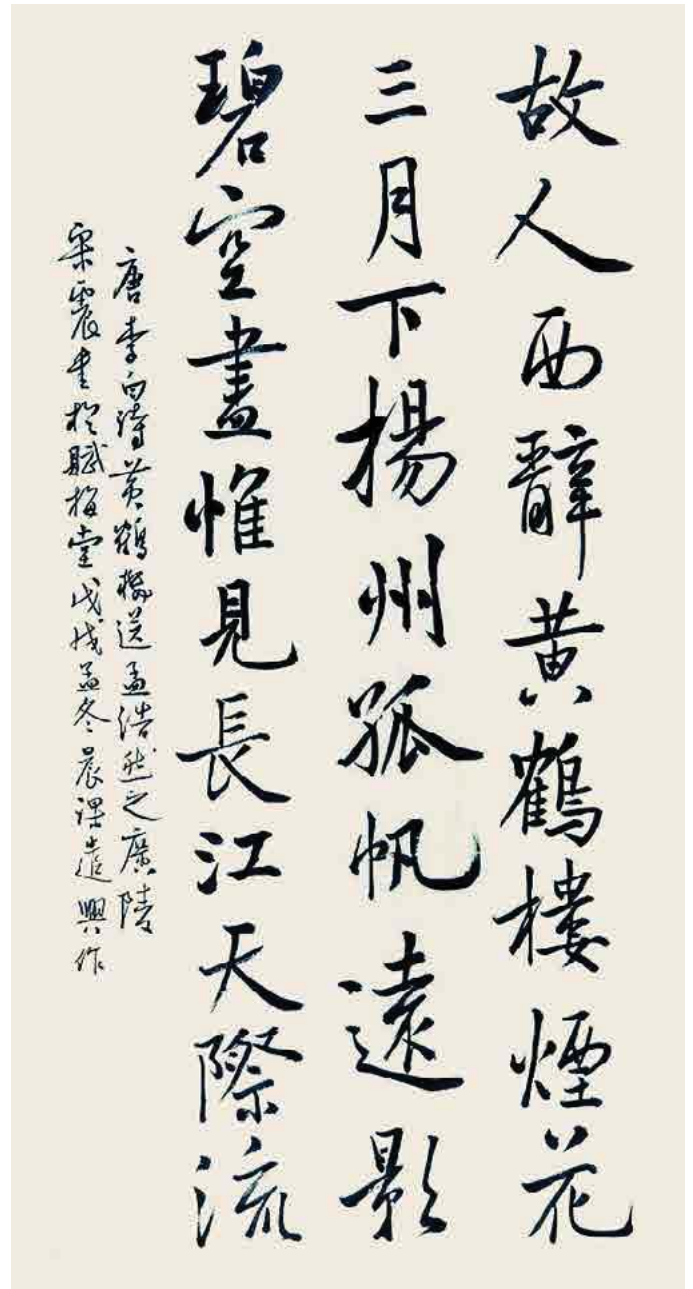 故人西辭黄鶴樓煙花
三月下揚州孤帆遠影
碧空盡惟見長江天際流
唐李白詩黄鶴樓送孟浩然之廣陵
震書於賦梅堂戊戌孟冬晨課遣興作